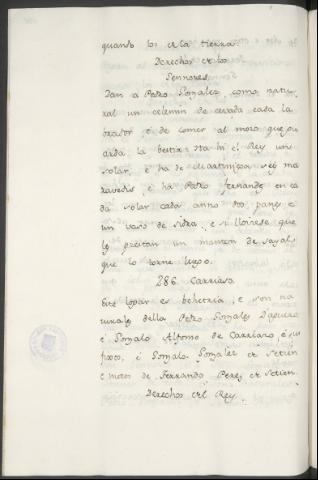 quando los ella tierra.
Derechos de los
Sennores
Dan a Pedro Gonzalez, como natu-
ral un celemin de cevada cada la-
brador, e de comer al mozo que gu
arda la bestia
solar, e ha de Martiniega seis ma
ravedis, e ha Pedro Fernandz en ca
da solar cada anno dos panes e
un vaso de sidra, e si lloviese que
le prestan un manton de sayal
que lo torne luego.
286 Carriaso
Este logar es behetria, e son na
turales della Pero Gonzales Daguero
e Gonzalo Alfonso de Carriazo, e sus
fijos, e Gonzalo Gonzalez de Setien
e nietos de Ferrando Perez de Setien.
Derechos del Rey.